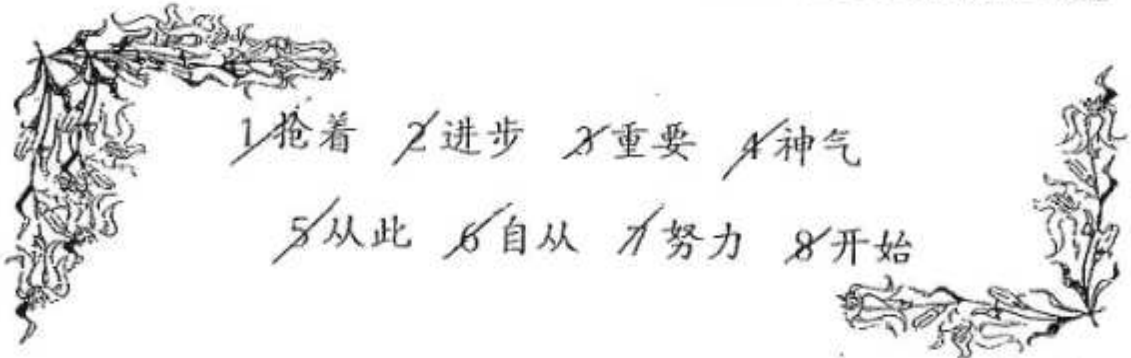 1 抢着 2 进步 3 重要 4 神气
5 从此 6 自从 7 努力 8 开始